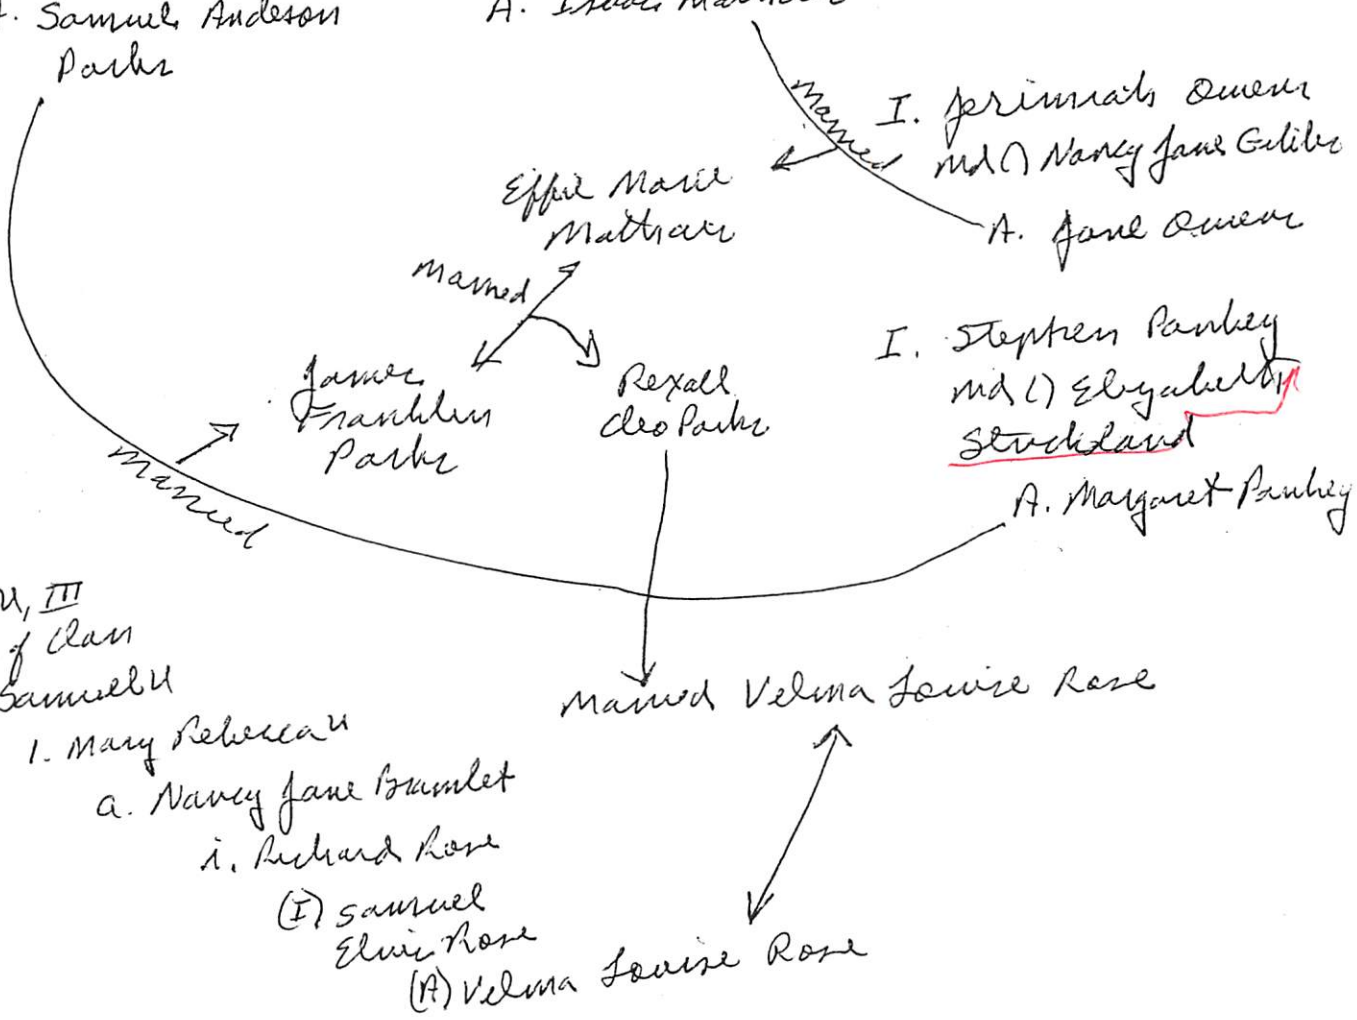 Samuel Andeson
Parks
A. Isaac
Married
I. Jerimiah Owens
md () Nancy Jane
A. Jane Owens
Effie Marie
Mathews
Married
James
Franklin
Parks
Rexall
Cleo Parks
I. Stephen Pankey
md () Elizabeth
Strickland
A. Margaret Pankey
Married
III
of Clan
Samuel
1. Mary Rebecca
a. Nancy Jane Bramlet
i. Richard Rose
(I) Samuel
Elvie Rose
(A) Velma Louise Rose
Married Velma Louise Rose